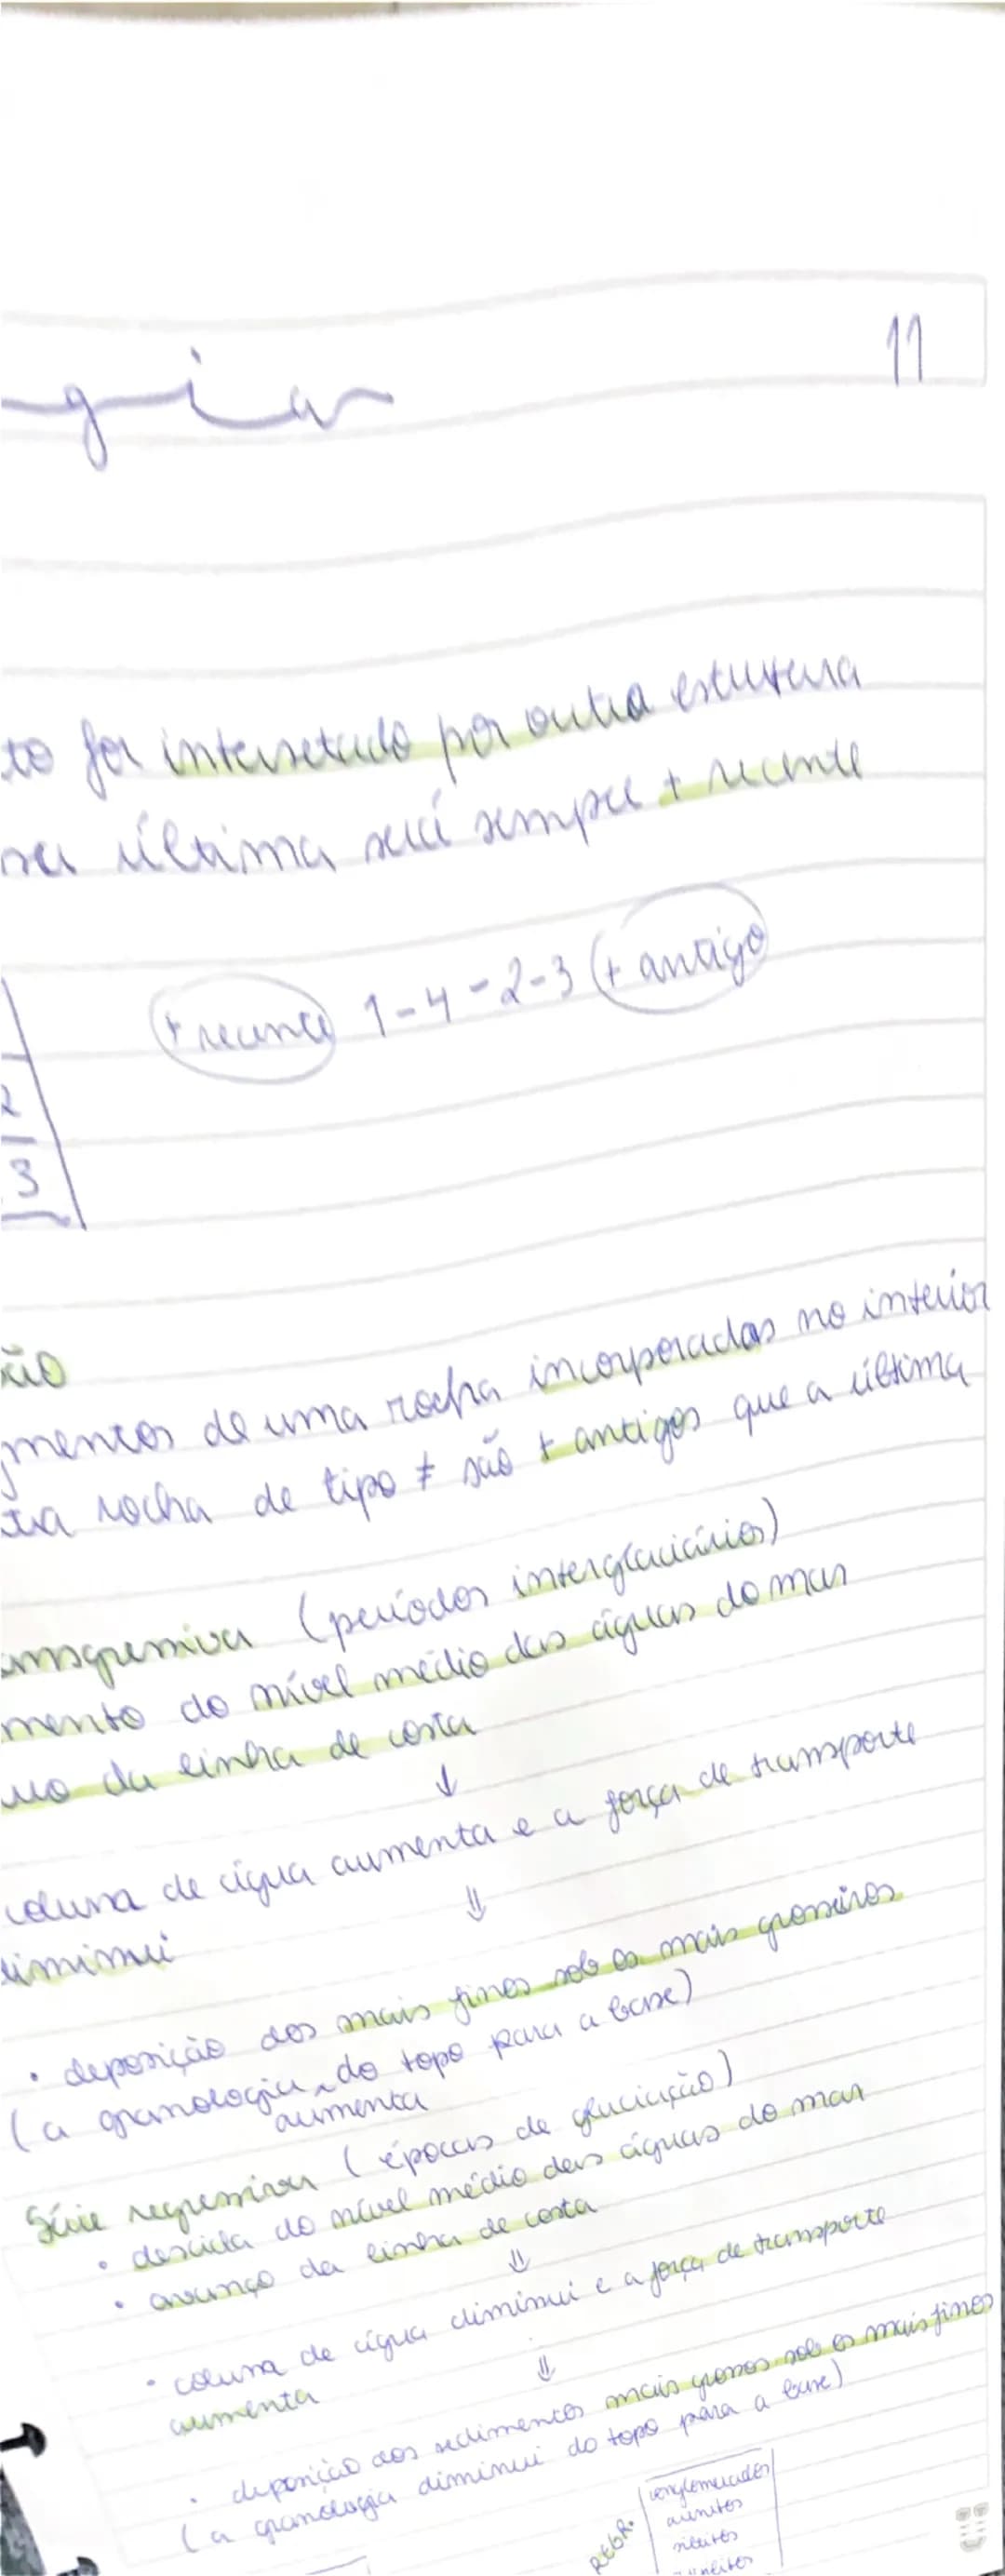 gia
11
to for intersetado por outra estrutura
sa última será sempre + recente
+ recente 1-4-2-3 (+ antigo
2
3
ão
gmentos de uma rocha incorporadas no interior
tra rocha de tipo ≠ são + antigos que a última
ansgressiva (períodos interglaciários)
mento do nível médio das águas do mar
uo da linha de costa
↓
coluna de água aumenta e a força de transporte
diminui
⇓
• deposição dos mais finos sob os mais grosseiros
(a granologia do topo para a base)
^ aumenta
Série regressiva (épocas de glaciação)
• descida do nível médio das águas do mar
• avanço da linha de costa
⇓
• coluna de água diminui e a força de transporte
aumenta
⇓
• deposição dos sedimentos mais grossos sob os mais finos
(a granologia diminui do topo para a base)
REGR.
conglomerados
arenitos
siltitos